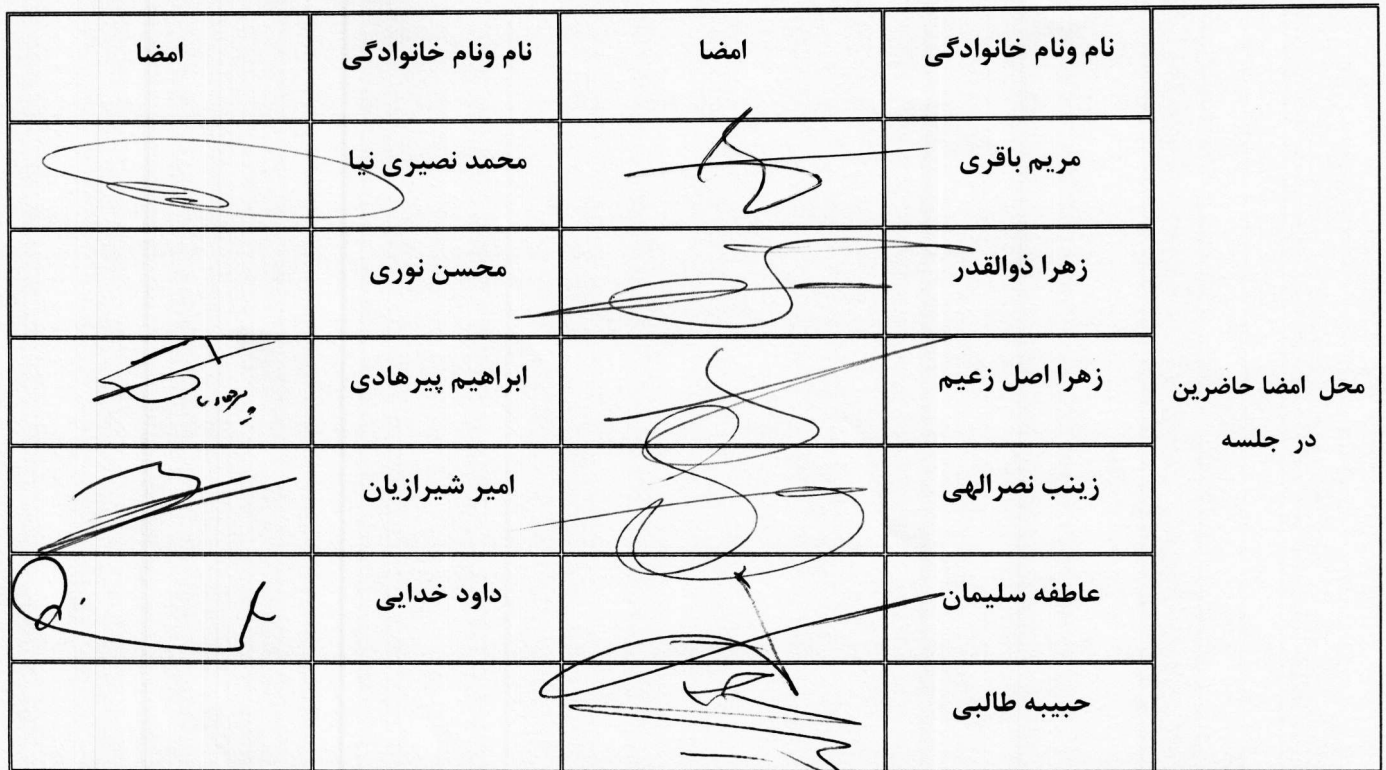 محل امضا حاضرین
در جلسه
نام ونام خانوادگی امضا نام ونام خانوادگی امضا
مریم باقری محمد نصیری نیا
زهرا ذوالقدر محسن نوری
زهرا اصل زعیم ابراهیم پیرهادی
پیرهادی
زینب نصرالهی امیر شیرازیان
عاطفه سلیمان داود خدایی
حبیبه طالبی